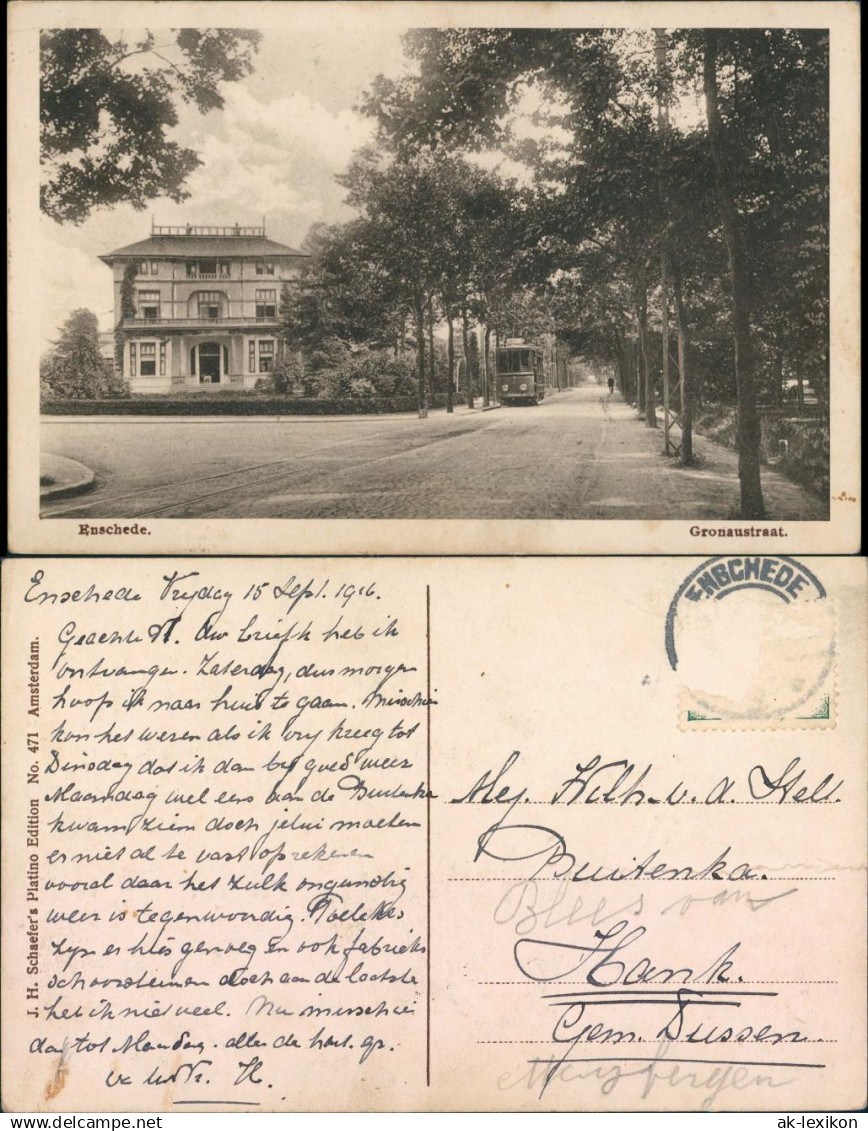 Enschede.
Gronaustraat.
Enschede Vrijdag 15 Sept. 1916.
Geachte W. Uw briefk heb ik
ontvangen. Zaterdag, dus morgen
hoop ik naar huis te gaan. Misschien
kon het wezen als ik vrij kreeg tot
Dinsdag dat ik dan bij goed weer
Maandag wel eens aan de Buitenka
kwam zien doch jelui moeten
er niet al te vast op rekenen
vooral daar het zulk ongunstig
weer is tegenwoordig.
zijn er hier genoeg en ook fabrieks
schoorsteenen doch aan de laatste
heb ik niet veel. Nu misschien
dat tot Mandag. allen de hart. gr.
H.
J. H. Schaefer's Platino Edition No. 471 Amsterdam.
ENSCHEDE
Mej. Wilh. v. d. Stel.
Buitenka.
Blees van
Hank.
Gem. Dussen.
ak-lexikon
delcampe.net